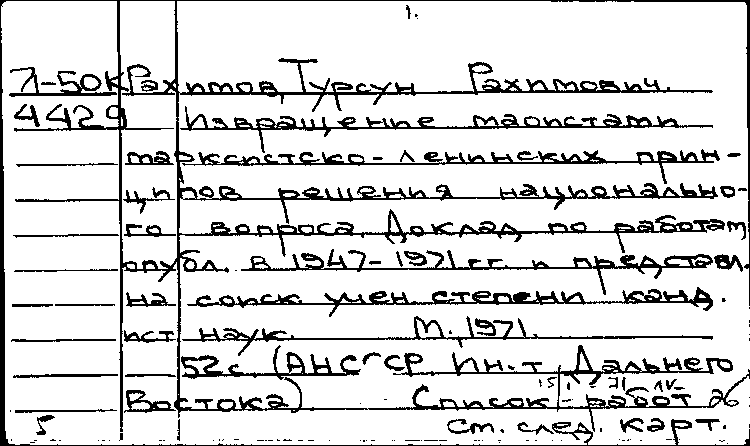 1.
71-50К Рахимов, Турсун Рахимович.
4429 Извращение маоистами
марксистско-ленинских прин-
ципов решения национально-
го вопроса. Доклад по работам,
опубл. в 1947-1971 гг. и представл.
на соиск. учен. степени канд.
ист. наук. М., 1971.
52 с. (АН СССР. Ин-т Дальнего
Востока). Список работ
5 См. след. карт.